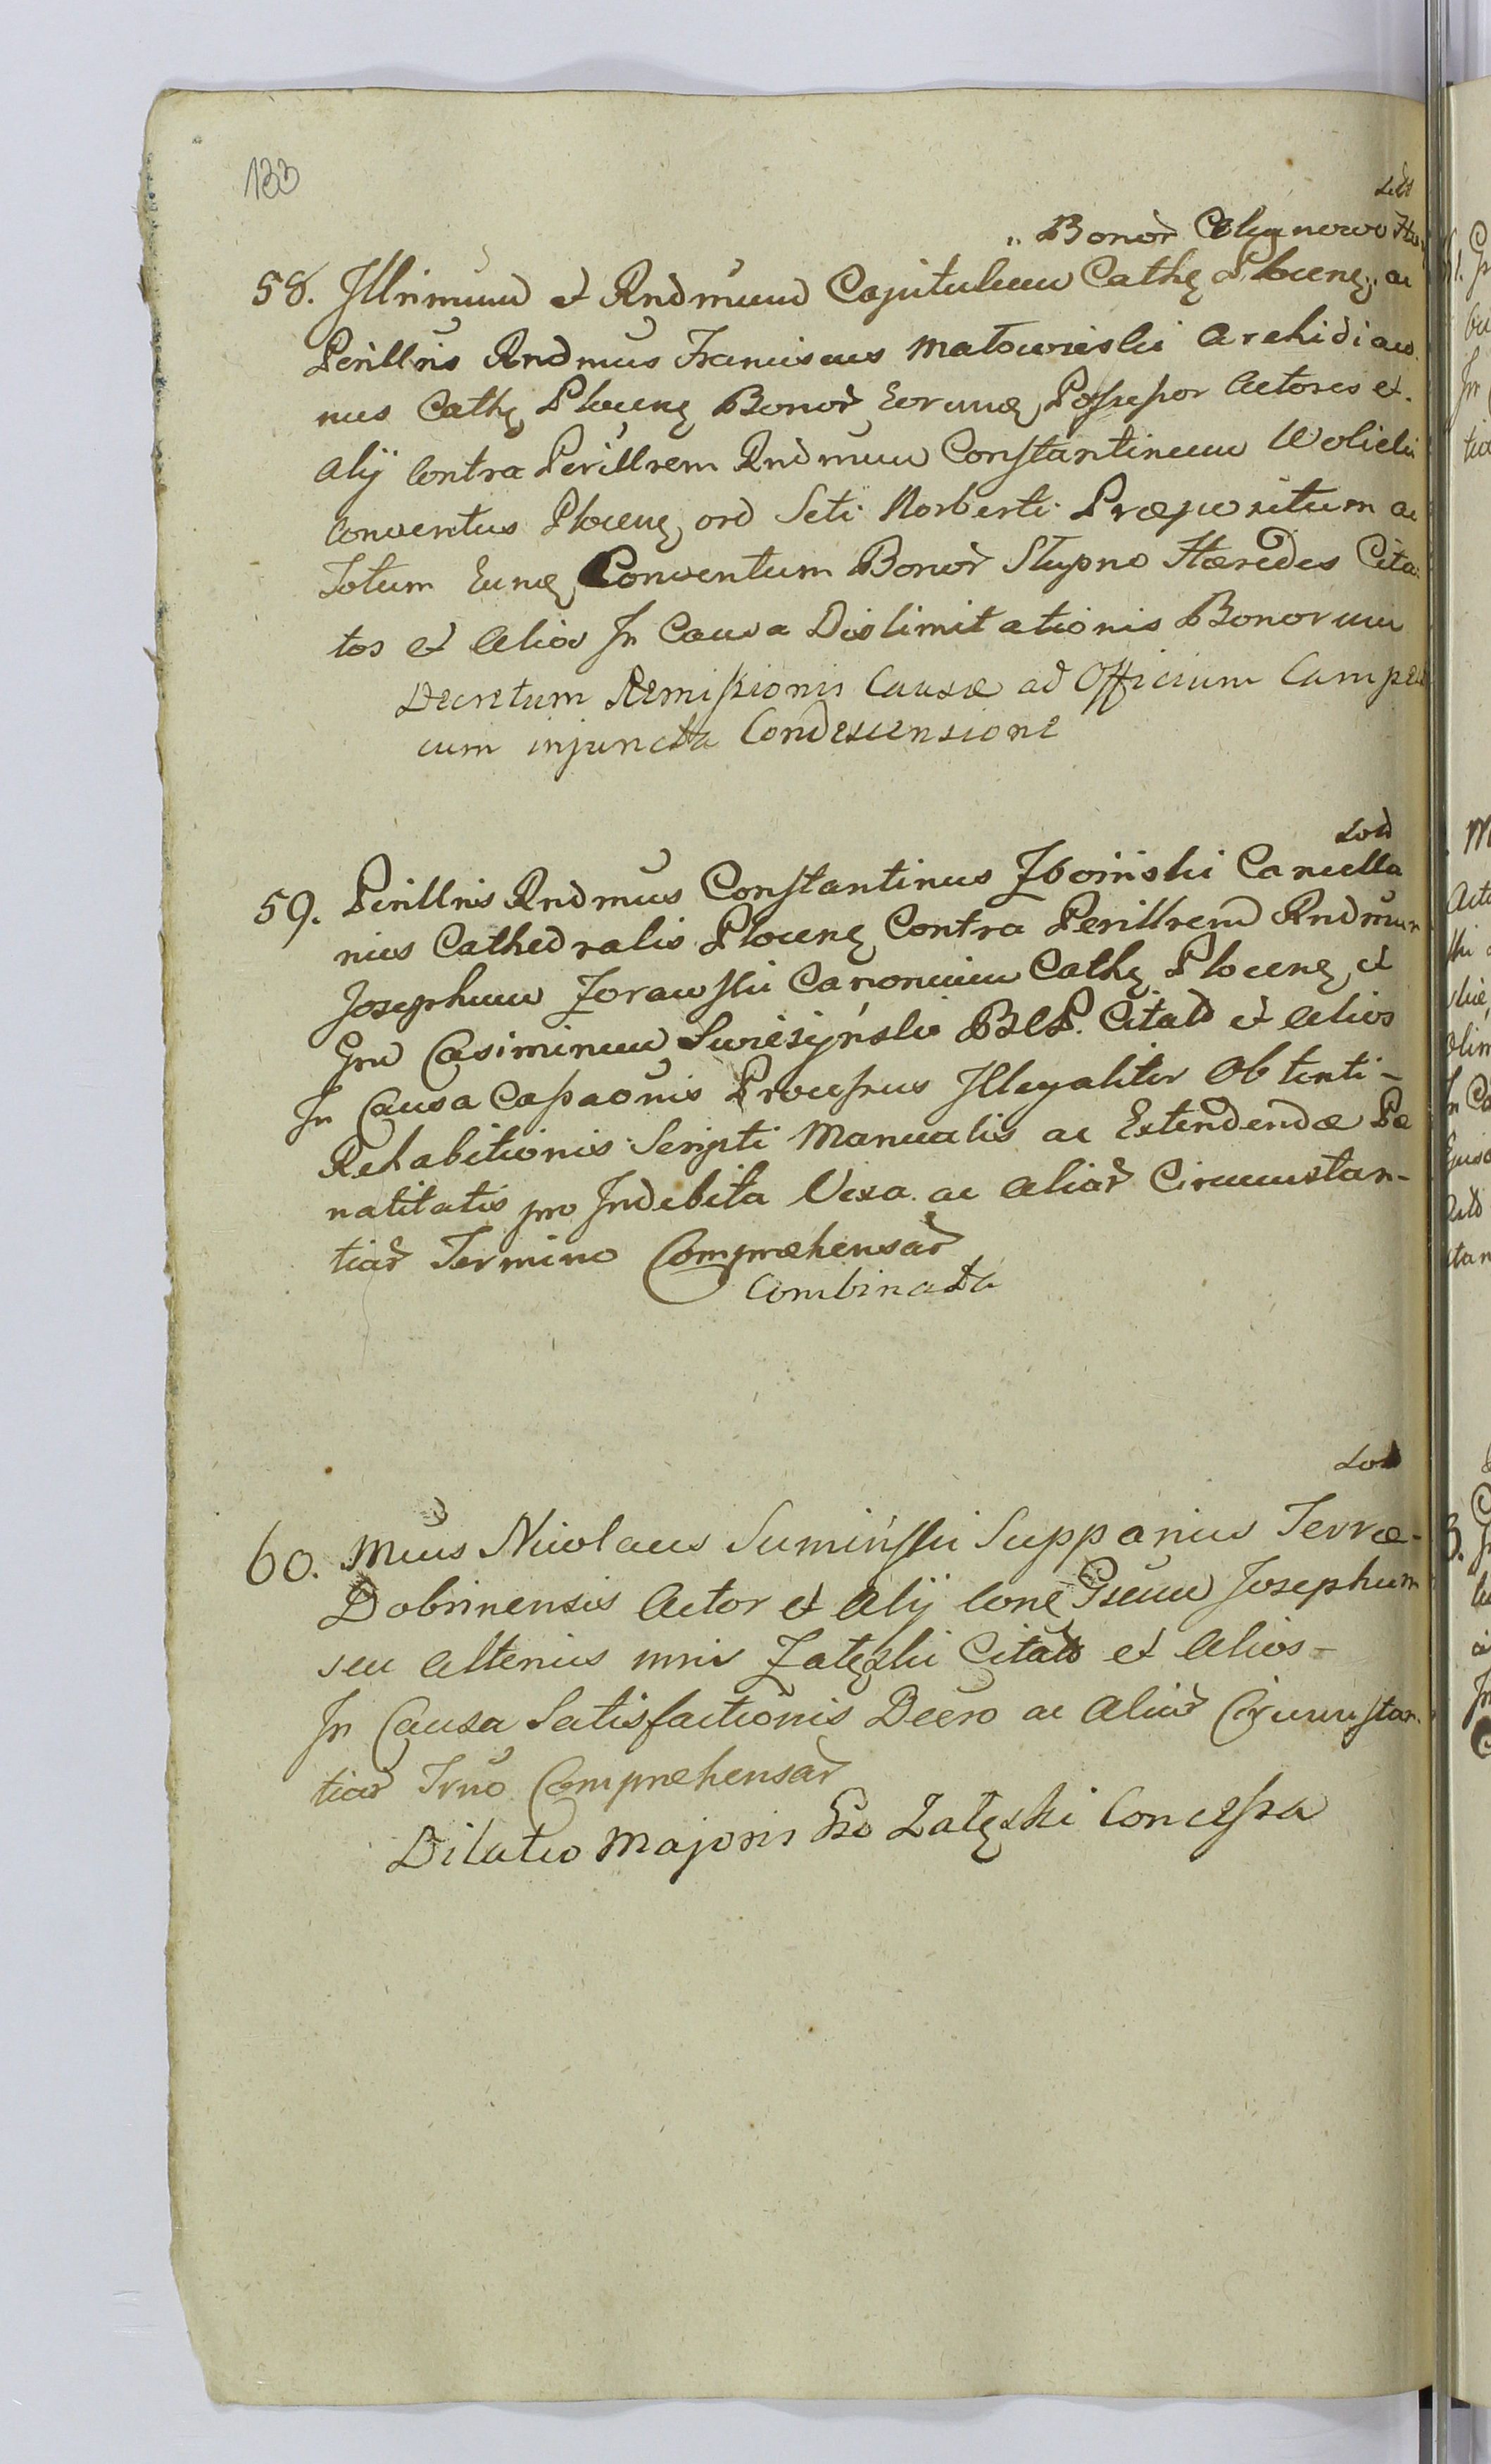 133
„ Bonor̃ Chynowo
58. Illrimum et Rndmum Capitulum Cathę Plocenę „ ac
Perillris Rndmus Franciscus Małowieski Archidiaco
nus Cathę Plocenę Bonor̃ Eorumę Possessor Actores et
Alij Contra Perillrem Rndmum Constantinum Wolicki
Conventus Plocenę ord Scti Norberti Præpositum ac
Totum Eunę Conventum Bonor̃ Słupno Hæredes Cita
tos et Alios In Causa Dislimitationis Bonorum
Decretum Remissionis Causæ ad Officium Campes
cum injuncta Condescensione
59. Perillris Rndmus Constantinus Zboiński Cancella
rius Cathedralis Plocenę Contra Perillrem Rndmum
Josephum Zorawski Canonicum Cathę Plocenę et
Grm Casimirum Swieżyński Citato et Alios
In Causa Cassaõnis Processus Illegaliter Obtenti -
Rehabitionis Scripti Manualis ac Extendendæ Pæ
nalitatis pro Indebita Vexa ac Aliar̃ Circumstan-
tiar̃ Termino Compræhensar̃
Combinata
60. Mcus Nicolaus Sumiński Supparius Terræ-
Dobrinensis Actor et Alij Conę Gsum Josephum
seu Alterius nnis Załęski Citato et Alios -
In Causa Satisfactionis Decro ac Aliar̃ Circumstan
tiar̃ Trno Comprehensar̃
Dilatio Majoris Gso Załęski Concessa